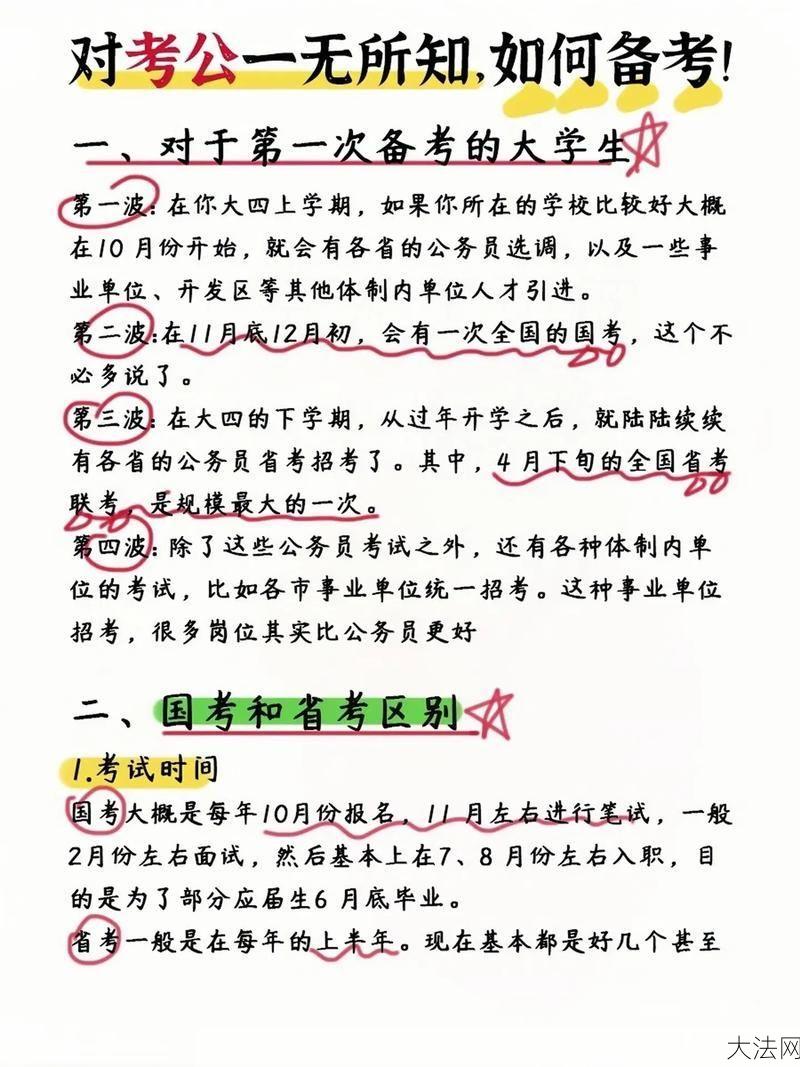 对考公一无所知,如何备考!
一、对于第一次备考的大学生
第一波:在你大四上学期，如果你所在的学校比较好大概
在10月份开始，就会有各省的公务员选调，以及一些事
业单位、开发区等其他体制内单位人才引进。
第二波:在11月底12月初，会有一次全国的国考，这个不
必多说了。
第三波:在大四的下学期，从过年开学之后，就陆陆续续
有各省的公务员省考招考了。其中，4月下旬的全国省考
联考，是规模最大的一次。
第四波:除了这些公务员考试之外，还有各种体制内单
位的考试，比如各市事业单位统一招考。这种事业单位
招考，很多岗位其实比公务员更好
二、国考和省考区别
1.考试时间
国考大概是每年10月份报名，11月左右进行笔试，一般
2月份左右面试，然后基本上在7、8月份左右入职，目
的是为了部分应届生6月底毕业。
省考一般是在每年的上半年。现在基本都是好几个甚至
大法网